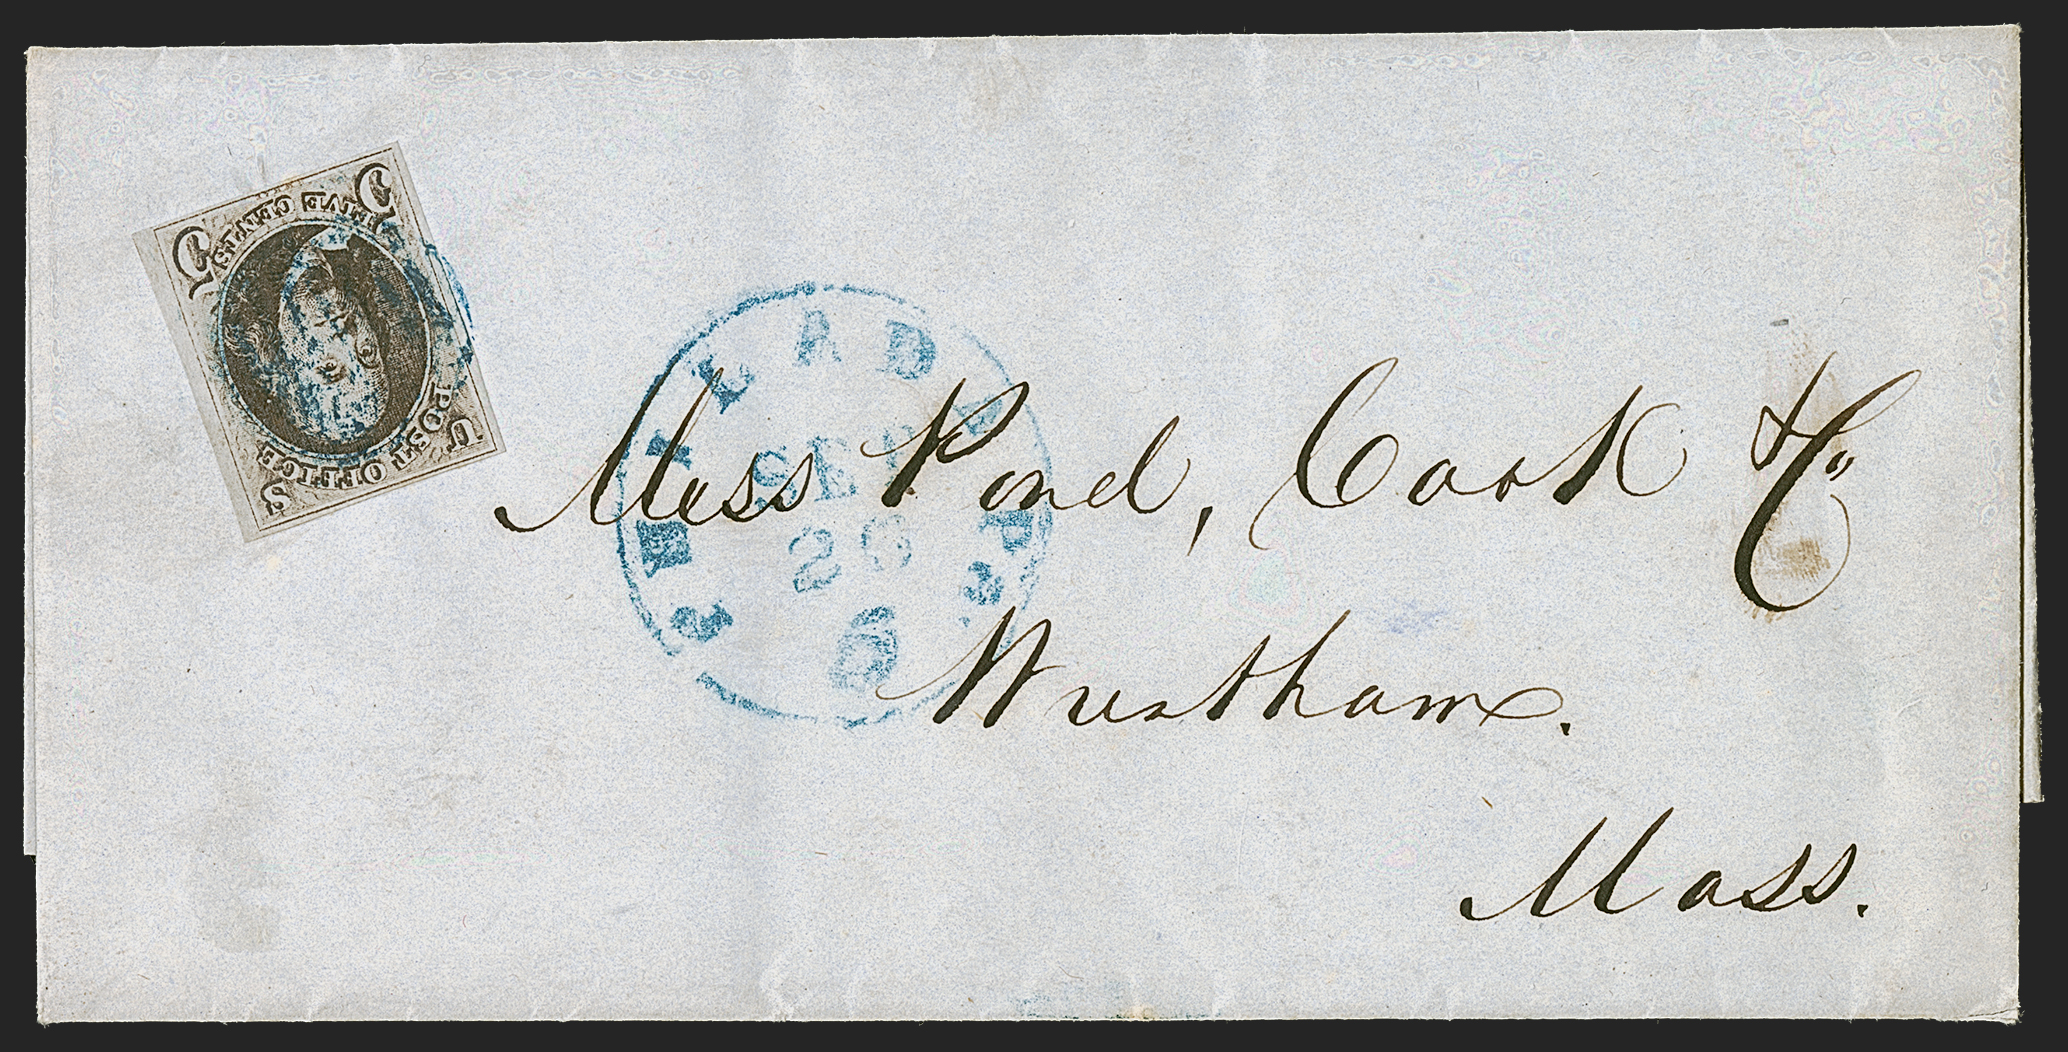 5 FIVE CENTS 5
U POST OFFICE S
PHILADA Pa.
SEP
26
Mess Pond, Cook & Co
Wrentham.
Mass.